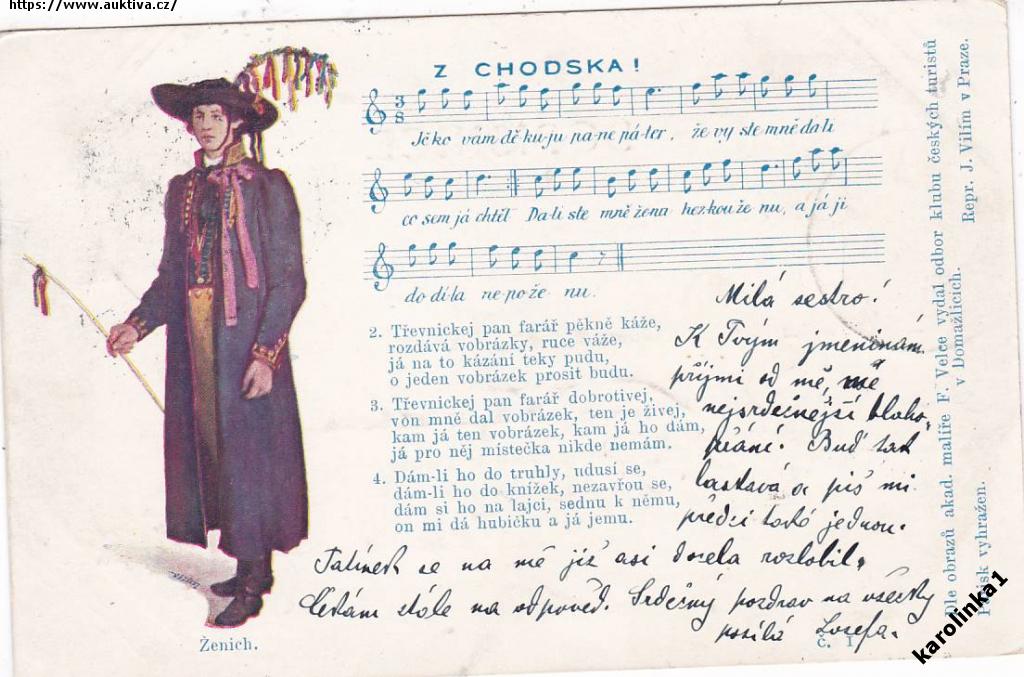 https://www.auktiva.cz/
Z CHODSKA!
3
8
Jč ko vám dě ku-ju pa-ne pá-ter, že vy ste mně da-li
co sem já chtít Da-li ste mně žena hez-kou že nu, a já ji
do dí-la ne-po-že nu.
2. Třevnickej pan farář pěkně káže,
rozdává vobrázky, ruce váže,
já na to kázání teky pudu,
o jeden vobrázek prosit budu.
3. Třevnickej pan farář dobrotivej,
von mně dal vobrázek, ten je živej,
kam já ten vobrázek, kam já ho dám,
já pro něj místečka nikde nemám.
4. Dám-li ho do truhly, udusí se,
dám-li ho do knížek, nezavřou se,
dám si ho na lajci, sednu k němu,
on mi dá hubičku a já jemu.
Milá sestro!
K Tvým jmeninám
přijmi od mě, mé
nejsrdečnější blaho-
přání. Buď tak
laskavá a piš mi
předci taká jednou.
Tatínek se na mě již asi docela rozlobil,
čekám stále na odpověď. Srdečný pozdrav na všecky
posílá Josefa.
Ženich.
Č. 1
Dle obrazů akad. malíře F. Velce vydal odbor klubu českých turistů
v Domažlicích.
Repr. J. Vilím v Praze.
Přetisk vyhražen.
karolinka1